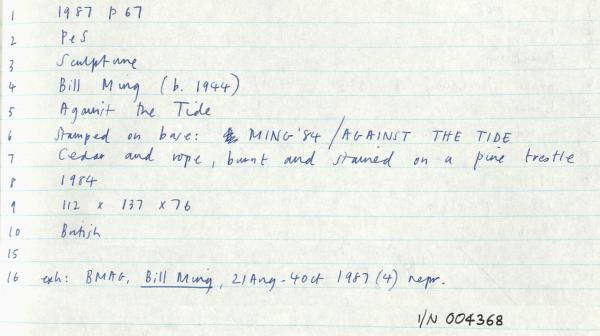 1 1987 P 67
2 PeS
3 Sculpture
4 Bill Ming (b. 1944)
5 Against the Tide
6 Stamped on base: MING '84 / AGAINST THE TIDE
7 Cedar and rope, burnt and stained on a pine trestle
8 1984
9 112 x 137 x 76
10 British
15
16 exh: BMAG, Bill Ming, 21 Aug - 4 Oct 1987 (4) repr.
I/N 004368